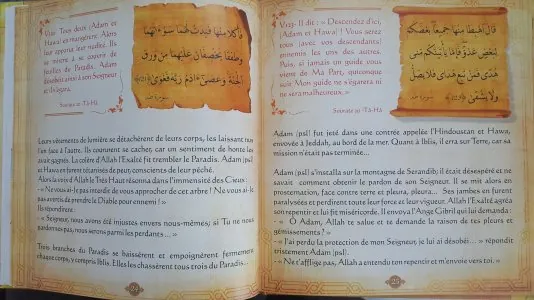 V121. Tous deux [Adam et
Hawa] en mangèrent. Alors
leur apparut leur nudité. Ils
se mirent à se couvrir de
feuilles du Paradis. Adam
désobéit ainsi à son Seigneur
et il s'égara.
Sourate 20 Tâ-Hâ
فَأَكَلَا مِنْهَا فَبَدَتْ لَهُمَا سَوْءَاتُهُمَا
وَطَفِقَا يَخْصِفَانِ عَلَيْهِمَا مِن وَرَقِ
الْجَنَّةِ وَعَصَىٰ آدَمُ رَبَّهُ فَغَوَىٰ
Leurs vêtements de lumière se détachèrent de leurs corps, les laissant
l'un face à l'autre. Ils coururent se cacher, car un sentiment de honte les
avait gagnés. La colère d'Allah l'Exalté fit trembler le Paradis. Adam [psl]
et Hawa en furent tétanisés de peur, conscients de leur péché.
Alors la voix d'Allah le Très Haut résonna dans l'immensité des Cieux :
- « Ne vous ai-Je pas interdit de vous approcher de cet arbre ! Ne vous ai-Je
pas avertis de prendre le Diable pour ennemi ! »
Ils répondirent :
- « Seigneur, nous avons été injustes envers nous-mêmes; si Tu ne nous
pardonnes pas, nous serons parmi les perdants... »
Trois branches du Paradis se baissèrent et empoignèrent fermement
chaque corps, y compris Iblis. Elles les chassèrent tous trois du Paradis...
24
V123. Il dit : « Descendez d'ici,
[Adam et Hawa] ! Vous serez
tous [avec vos descendants]
ennemis les uns des autres.
Puis, si jamais un guide vous
vient de Ma Part, quiconque
suit Mon guide ne s'égarera ni
ne sera malheureux. »
Sourate 20 Tâ-Hâ
قَالَ اهْبِطَا مِنْهَا جَمِيعًا بَعْضُكُمْ
لِبَعْضٍ عَدُوٌّ فَإِمَّا يَأْتِيَنَّكُم مِّنِّي
هُدًى فَمَنِ اتَّبَعَ هُدَايَ فَلَا يَضِلُّ
وَلَا يَشْقَىٰ
Adam [psl] fut jeté dans une contrée appelée l'Hindoustan et Hawa,
envoyée à Jeddah, au bord de la mer. Quant à Iblis, il erra sur Terre, car sa
mission n'était pas terminée...
Adam [psl] s'installa sur la montagne de Serandib; il était désespéré et ne
savait comment obtenir le pardon de son Seigneur. Il se mit alors en
prosternation, face contre terre et pleura... Ses jambes en furent
paralysées et perdirent toute leur force et leur vigueur. Allah l'Exalté agréa
son repentir et lui fit miséricorde. Il envoya l'Ange Gibril qui lui demanda :
- « Ô Adam, Allah te salue et te demande la raison de tes pleurs et
gémissements ? »
- « J'ai perdu la protection de mon Seigneur, je lui ai désobéi... » répondit
tristement Adam [psl].
- « Ne t'afflige pas, Allah a entendu ton repentir et m'envoie vers toi. »
25